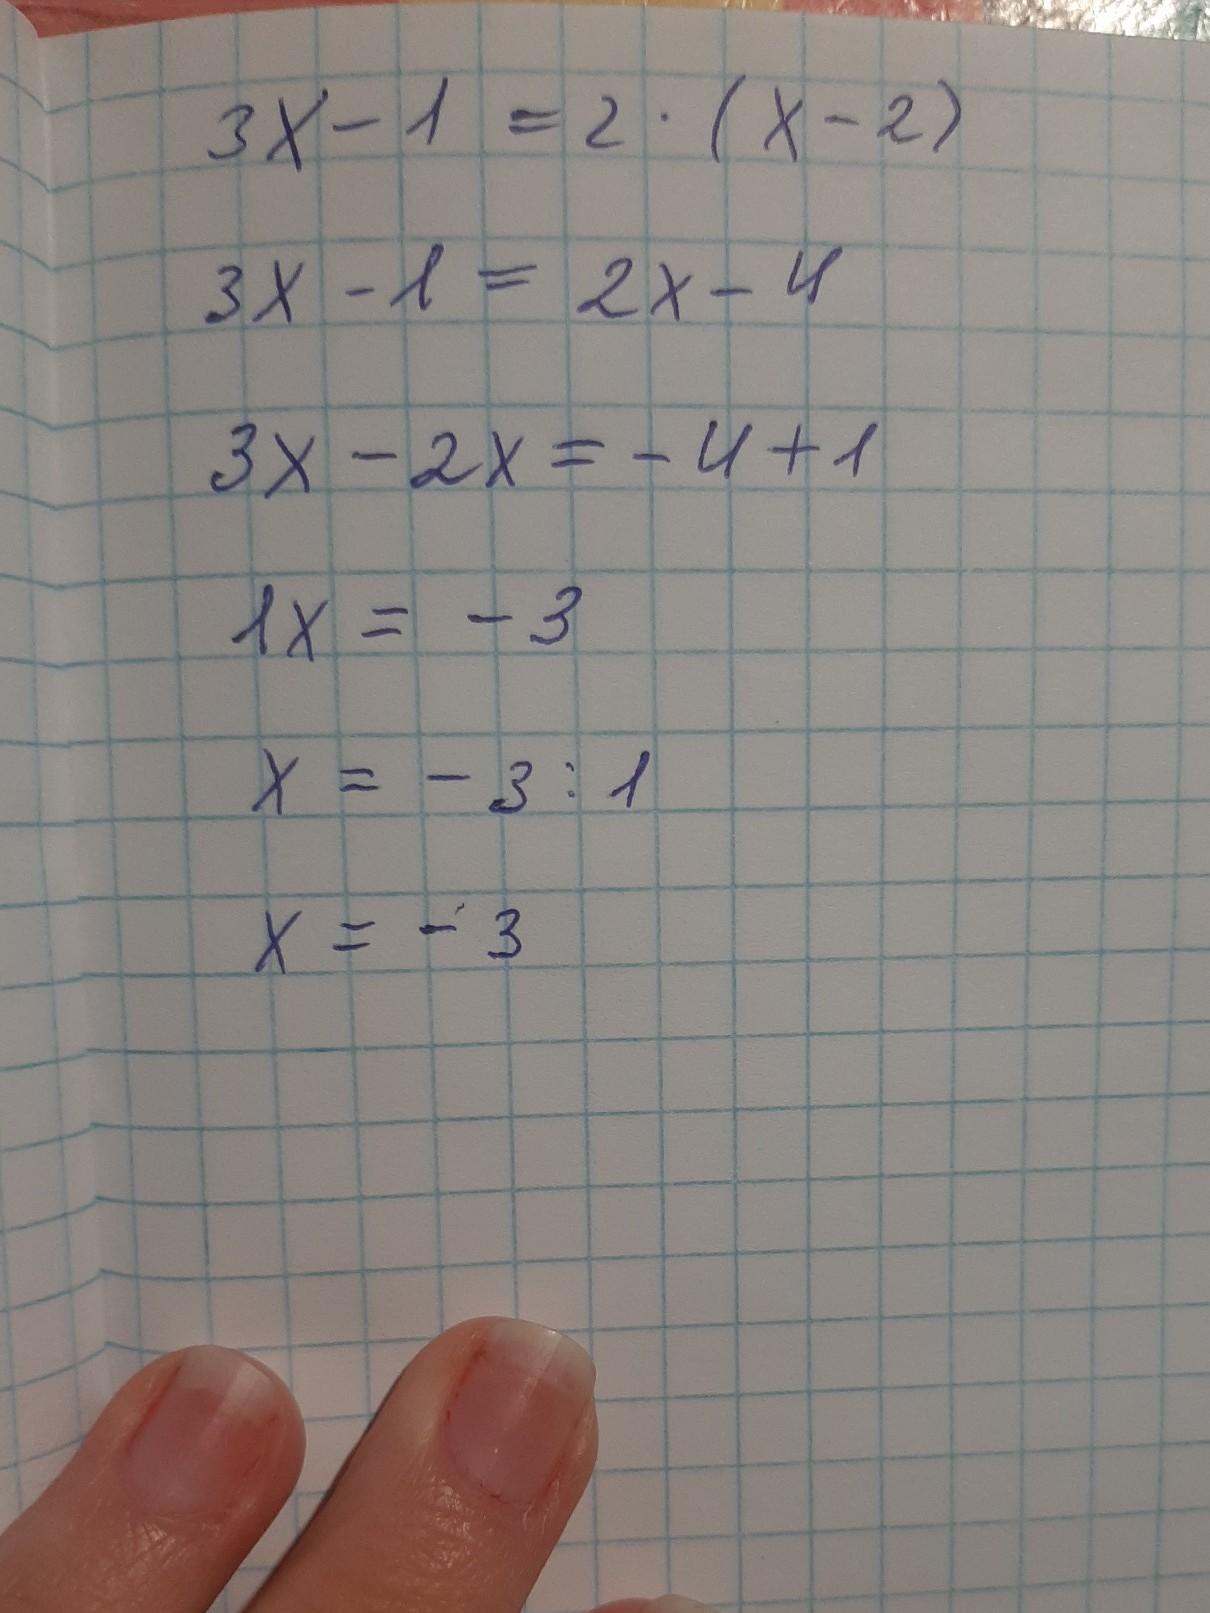 3x - 1 = 2 · (x - 2)
3x - 1 = 2x - 4
3x - 2x = - 4 + 1
1x = - 3
x = - 3 : 1
x = - 3